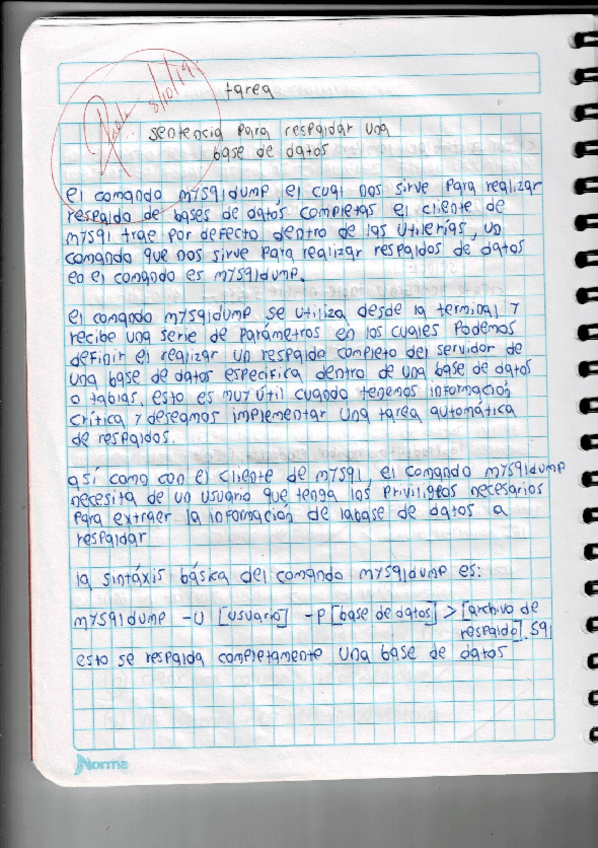 8/10/19
tarea
sentencia para respaldar una
base de datos
el comando mysqldump, el cual nos sirve para realizar
respaldo de bases de datos completas el cliente de
mysql trae por defecto dentro de las utilerías, un
comando que nos sirve para realizar respaldos de datos
eo el comando es mysqldump.
el comando mysqldump se utiliza desde la terminal y
recibe una serie de parámetros en los cuales podemos
definir el realizar un respaldo completo del servidor de
una base de datos especifica dentro de una base de datos
o tablas, esto es muy útil cuando tenemos información
crítica y deseamos implementar una tarea automática
de respaldos.
así como con el cliente de mysql, el comando mysqldump
necesita de un usuario que tenga los priviligeos necesarios
para extraer la información de labase de datos a
respaldar
la sintáxis básica del comando mysqldump es:
mysqldump -U [usuario] -P [base de datos] > [archivo de
respaldo].sql
esto se respalda completamente una base de datos
Norma